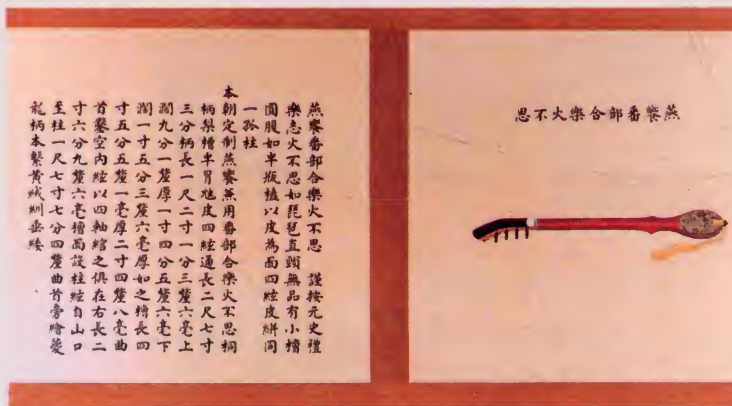 燕饗番部合樂火不思
燕饗番部合樂火不思　謹按元史禮
樂志火不思如琵琶直頸無品有小槽
圓腹如半瓶榼以皮為面四絃皮絣同
一孤柱
本朝定制燕饗兼用番部合樂火不思桐
柄梨槽半冒虺皮四絃通長二尺七寸
三分柄長一尺二寸一分三釐六毫上
濶九分一釐厚一寸四分五釐六毫下
濶一寸五分三釐六毫厚如之槽長四
寸五分五釐一毫厚二寸四釐八毫曲
首鑿空內絃以四軸綰之俱在右長二
寸六分九釐六毫槽面設柱絃自山口
至柱一尺七寸七分四釐曲首旁繪夔
龍柄本繫黃絨紃垂緌